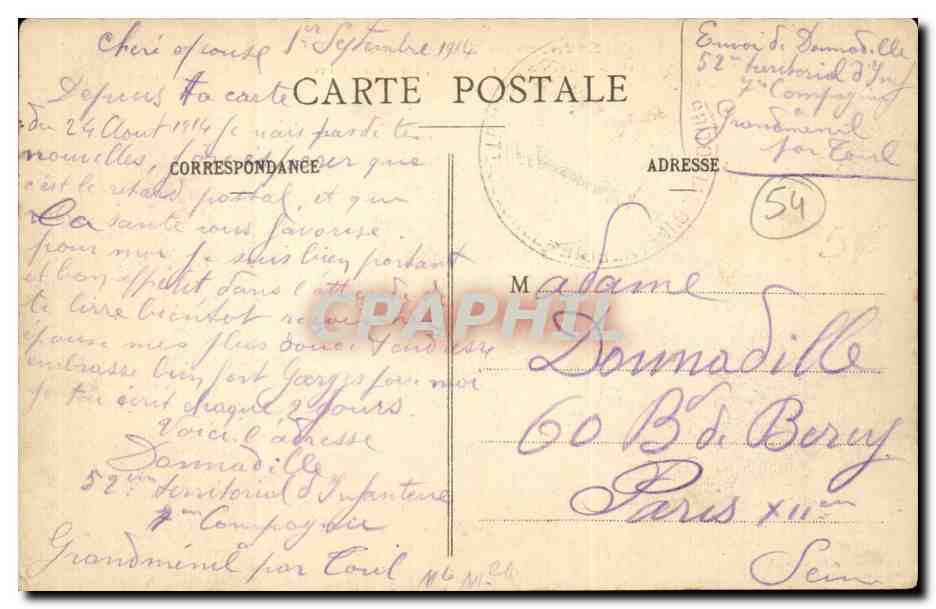 Chère epouse 1er Septembre 1914
CARTE POSTALE
CORRESPONDANCE
Depuis ta carte
du 24 Aout 1914 je nais pas de te
nouvelles, que
c'est le retard postal, et que
La santé vous favorise
pour moi je suis bien portant
et bon dans l'attente de
te lire bientot
épouse mes plus
embrasse bien fort Georges pour moi
je t'ai écrit chaque 2 jours.
Voici l'adresse
Donnadille
52em territorial d'Infanterie
7em Compagnie
Grandménil par Toul
ADRESSE
Envoi de Donnadille
52em territorial d'Inf
7em Compagnie
Grandmenil
par Toul
54
Madame
Donnadille
60 Bd de Bercy
Paris XIIem
Seine
CPAPHIL